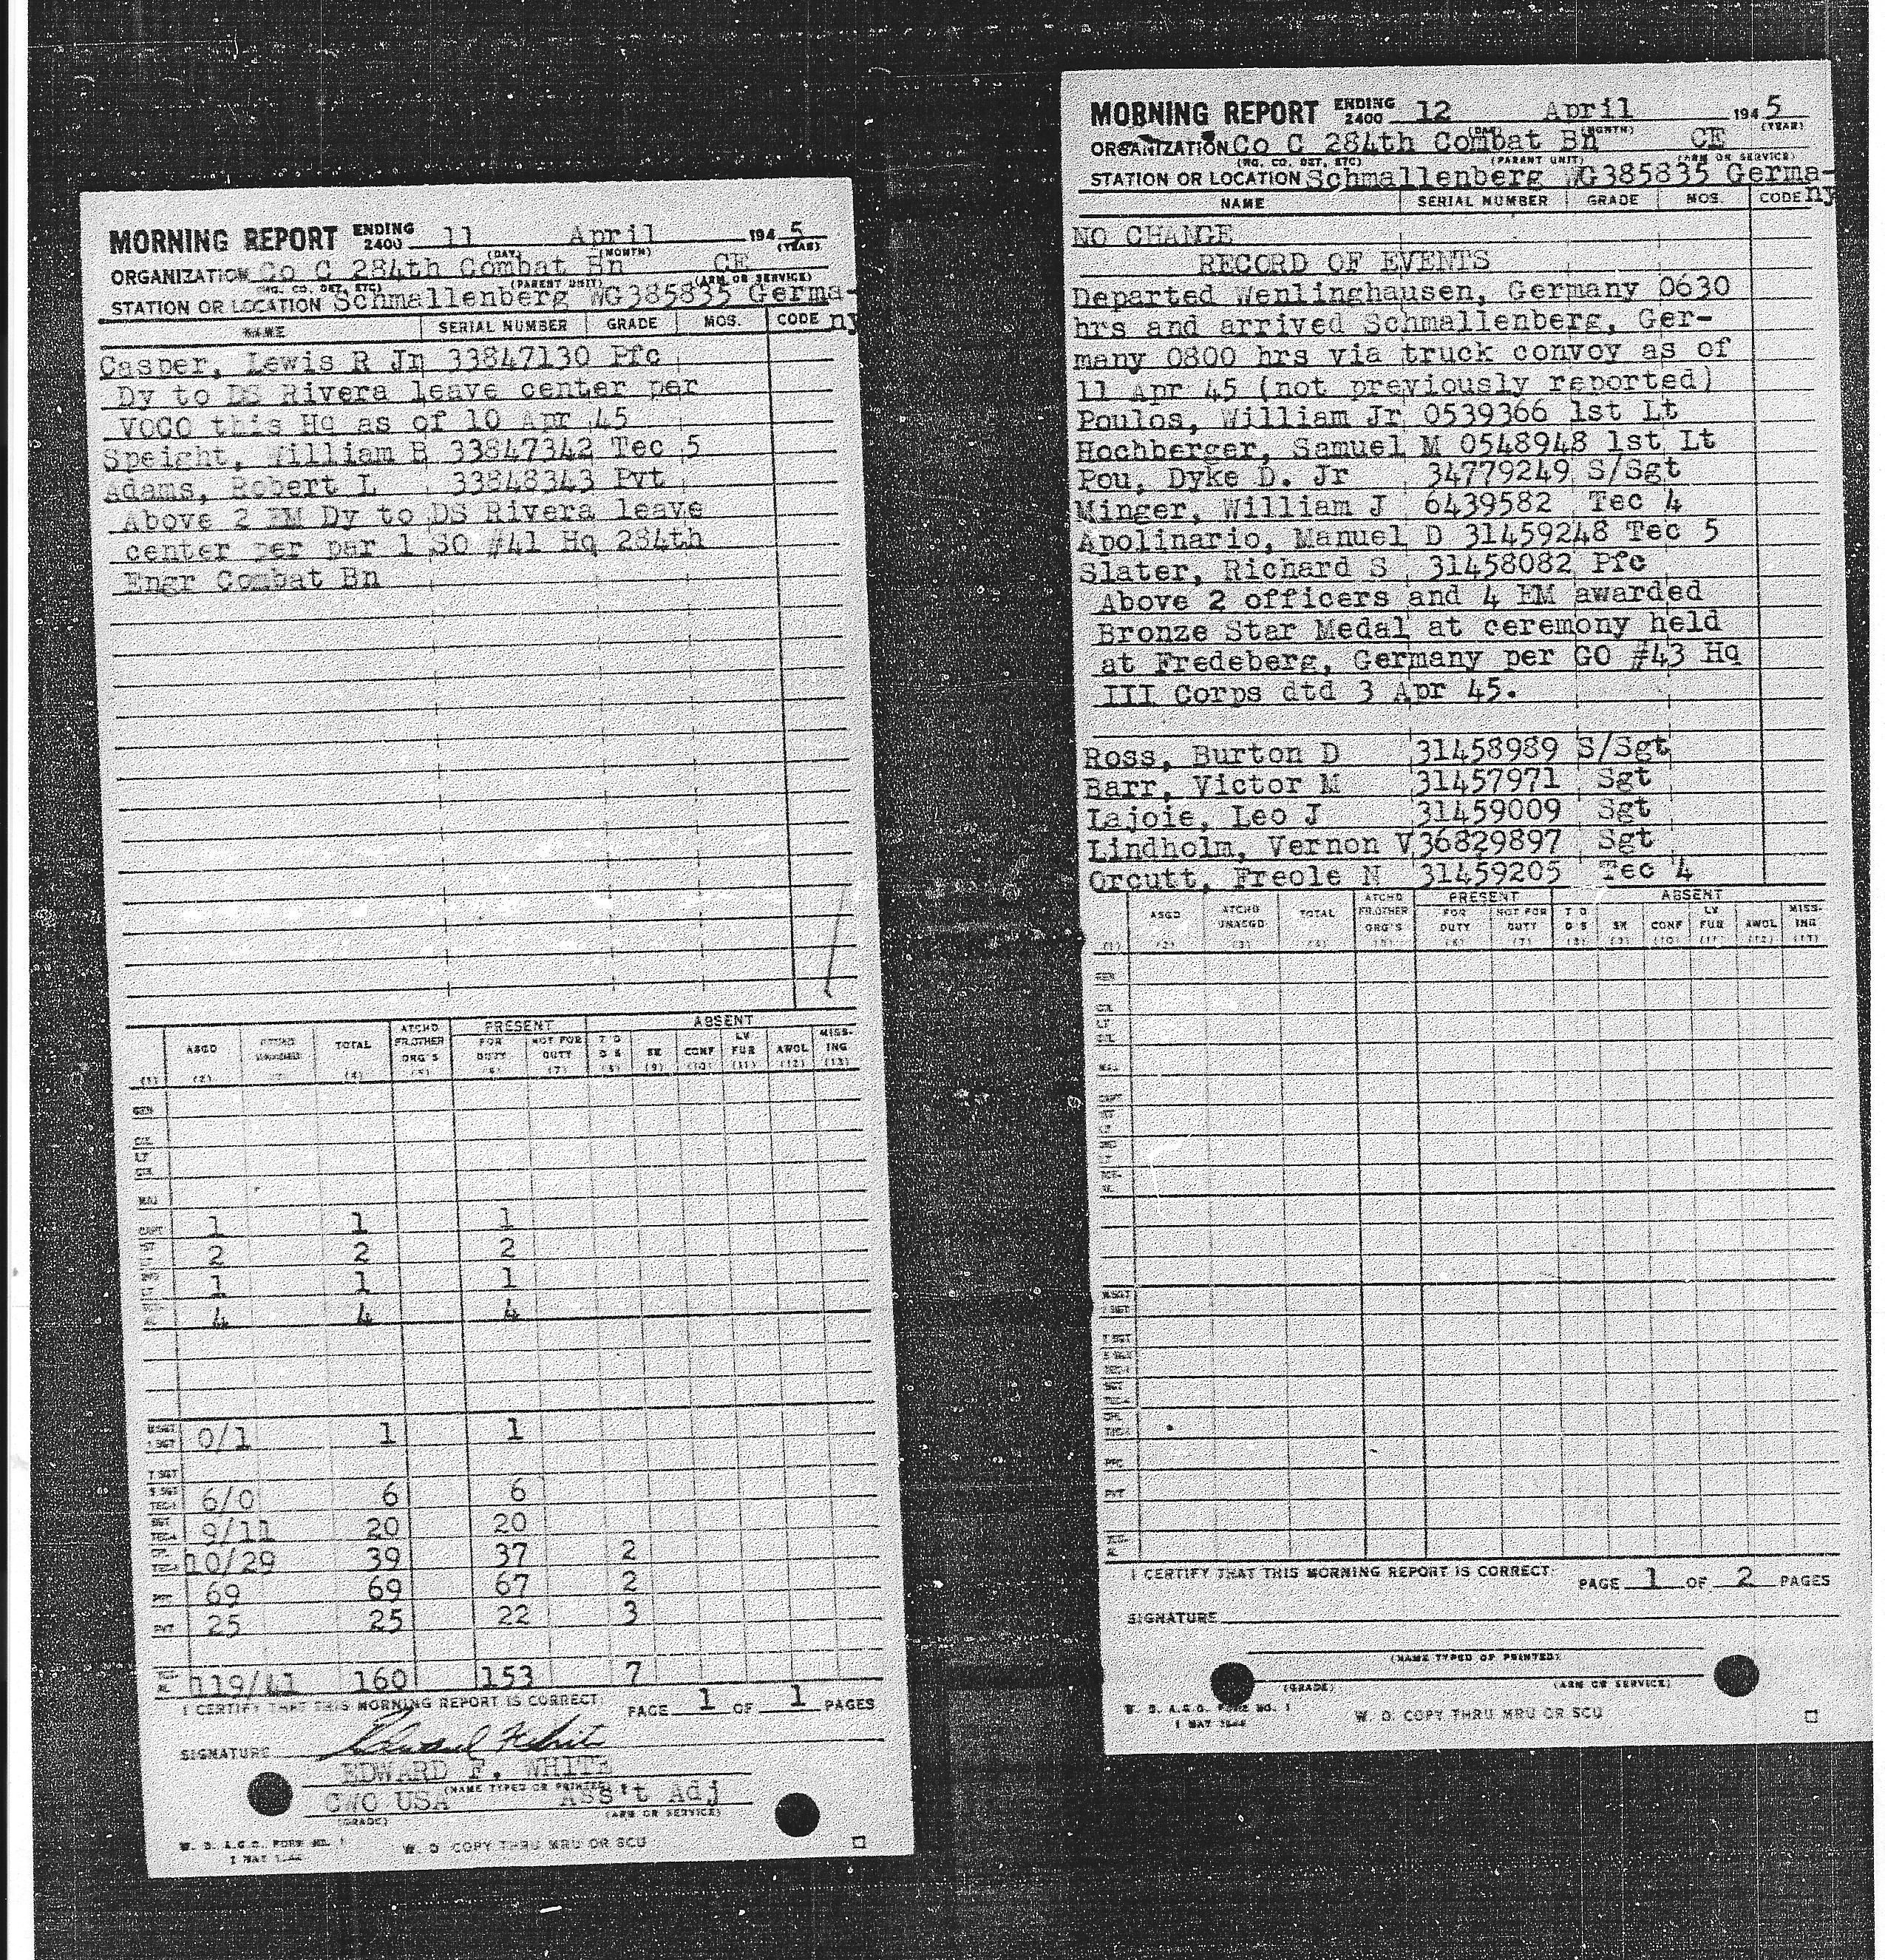 MORNING REPORT ENDING 2400 11 April 1945
(DAY) (MONTH) (YEAR)
ORGANIZATION Co C 284th Combat Bn CE
(HQ. CO. DET, ETC) (PARENT UNIT) (ARM OR SERVICE)
STATION OR LOCATION Schmallenberg WG385835 Germa-
NAME SERIAL NUMBER GRADE MOS. CODE ny
Casper, Lewis R Jr 33847130 Pfc
Dy to DS Rivera leave center per
VOCO this Hq as of 10 Apr 45
Speight, William B 33847342 Tec 5
Adams, Robert L 33848343 Pvt
Above 2 EM Dy to DS Rivera leave
center per par 1 SO #41 Hq 284th
Engr Combat Bn
PRESENT ABSENT
ASGD TOTAL ATCHD FR.OTHER ORG'S FOR DUTY NOT FOR DUTY T D D S SK CONF LV FUR AWOL MISS-ING
(1) (2) (4) (5) (6) (7) (8) (9) (10) (11) (12) (13)
GEN
COL
LT COL
MAJ
CAPT 1 1 1
2 2 2
1 1 1
4 4 4
M SGT
1 SGT 0/1 1 1
T SGT
S SGT
TEC-3 6/0 6 6
9/11 20 20
10/29 39 37 2
PFC 69 69 67 2
PVT 25 25 22 3
119/41 160 153 7
I CERTIFY THAT THIS MORNING REPORT IS CORRECT: PAGE 1 OF 1 PAGES
SIGNATURE Edward F White
EDWARD F. WHITE
(NAME TYPED OR PRINTED)
CWO USA Ass't Adj
(GRADE) (ARM OR SERVICE)
W. D. A.G.O. FORM NO. 1
W. D COPY THRU MRU OR SCU
MORNING REPORT ENDING 2400 12 April 1945
(DAY) (MONTH) (YEAR)
ORGANIZATION Co C 284th Combat Bn CE
(HQ. CO. DET, ETC) (PARENT UNIT) (ARM OR SERVICE)
STATION OR LOCATION Schmallenberg WG385835 Germa-
NAME SERIAL NUMBER GRADE MOS. CODE ny
NO CHANGE
RECORD OF EVENTS
Departed Wenlinghausen, Germany 0630
hrs and arrived Schmallenberg, Ger-
many 0800 hrs via truck convoy as of
11 Apr 45 (not previously reported)
Poulos, William Jr 0539366 1st Lt
Hochberger, Samuel M 0548948 1st Lt
Pou, Dyke D. Jr 34779249 S/Sgt
Minger, William J 6439582 Tec 4
Apolinario, Manuel D 31459248 Tec 5
Slater, Richard S 31458082 Pfc
Above 2 officers and 4 EM awarded
Bronze Star Medal at ceremony held
at Fredeberg, Germany per GO #43 Hq
III Corps dtd 3 Apr 45.
Ross, Burton D 31458989 S/Sgt
Barr, Victor M 31457971 Sgt
Lajoie, Leo J 31459009 Sgt
Lindholm, Vernon V 36829897 Sgt
Orcutt, Freole N 31459205 Tec 4
PRESENT ABSENT
ASGD ATCHD UNASGD TOTAL ATCHD FR.OTHER ORG'S FOR DUTY NOT FOR DUTY T D D S SK CONF LV FUR AWOL MISS-ING
(1) (2) (3) (4) (5) (6) (7) (8) (9) (10) (11) (12) (13)
GEN
COL
LT
COL
MAJ
CAPT
M SGT
1 SGT
T SGT
S SGT
PFC
PVT
I CERTIFY THAT THIS MORNING REPORT IS CORRECT: PAGE 1 OF 2 PAGES
SIGNATURE
(NAME TYPED OR PRINTED)
(GRADE) (ARM OR SERVICE)
W. D. A.G.O. FORM NO. 1
W. D. COPY THRU MRU OR SCU